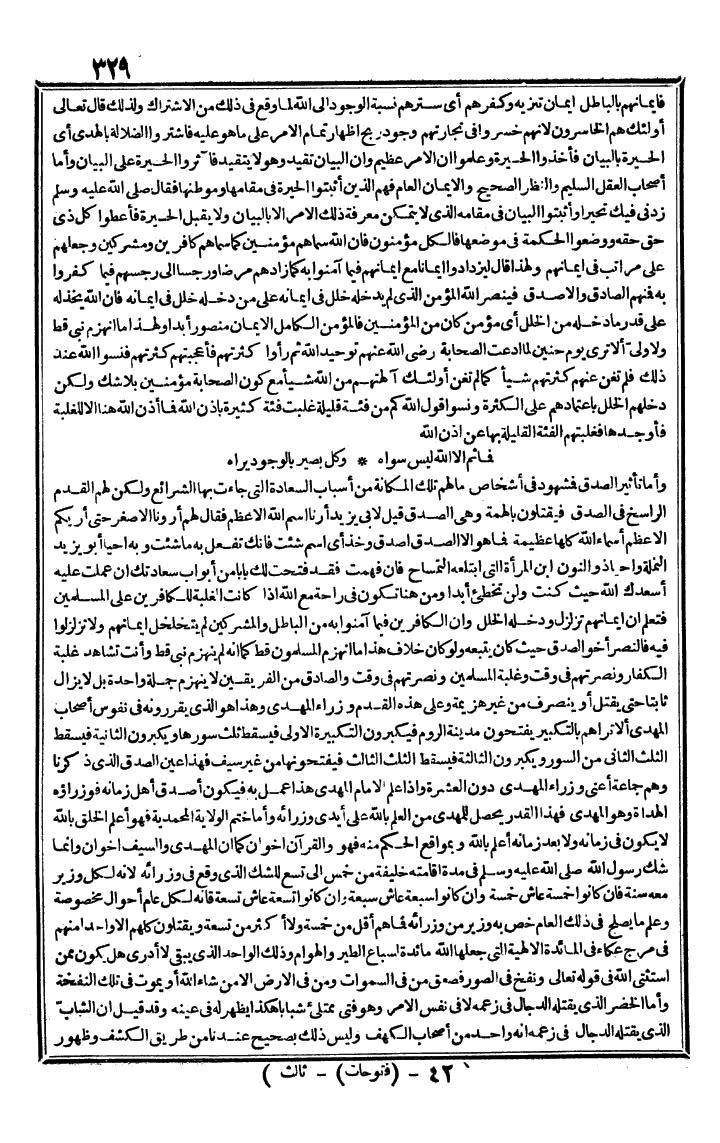 ٣٢٩
فايمانهم بالباطل ايمان تنزيه وكفرهم أى سترهم نسبة الوجود الى الله لما وقع فى ذلك من الاشتراك ولذلك قال تعالى
أولئك هم الخاسرون لانهم خسروا فى تجارتهم وجود ربح اظهار تمام الامر على ماهو عليه فاشتروا الضلالة بالهدى أى
الحيرة بالبيان فأخذوا الحيرة وعلموا ان الامر عظيم وان البيان تقييد وهو لا يتقيد فآثروا الحيرة على البيان وأما
أصحاب العقل السليم والنظر الصحيح والايمان العام فهم الذين أثبتوا الحيرة فى مقامها وموطنها فقال صلى الله عليه وسلم
زدنى فيك تحيرا وأثبتوا البيان فى مقامه الذى لا يتمكن معرفة ذلك الامر الا بالبيان ولا يقبل الحيرة فأعطوا كل ذى
حق حقه ووضعوا الحكمة فى موضعها فالكل مؤمنون فان الله سماهم مؤمنين كما سماهم كافرين ومشركين وجعلهم
على مراتب فى ايمانهم ولهذا قال ليزدادوا ايمانا مع ايمانهم فيما آمنوا به كما زادهم مرضا ورجسا الى رجسهم فيما كفروا
به فنهم الصادق والاصدق فينصر الله المؤمن الذى لم يدخله خلل فى ايمانه على من دخله خلل فى ايمانه فان الله يخذله
على قدر ما دخله من الخلل أى مؤمن كان من المؤمنين فالمؤمن الكامل الايمان منصور أبدا ولهذا ما انهزم نبى قط
ولا ولى ألا ترى يوم حنين لما ادعت الصحابة رضى الله عنهم توحيد الله ثم رأوا كثرتهم فأعجبتهم كثرتهم فنسوا الله عند
ذلك فلم تغن عنهم كثرتهم شيأ كمالم تغن أولئك آلهتهم من الله شيأ مع كون الصحابة مؤمنين بلا شك ولكن
دخلهم الخلل باعتمادهم على الكثرة ونسوا قول الله كم من فئة قليلة غلبت فئة كثيرة باذن الله فما أذن الله هنا الا للغلبة
فأوجدها فغلبتهم الفئة القليلة بها عن اذن الله
فاثم الا الله ليس سواه * وكل بصير بالوجود يراه
وأما تأثير الصدق فشهود فى أشخاص ما لهم تلك المكانة من أسباب السعادة التى جاءت بها الشرائع ولكن لهم القدم
الراسخ فى الصدق فيقتلون بالهمة وهى الصدق قيل لابى يزيد أرنا اسم الله الاعظم فقال لهم أرونا الاصغر حتى أريكم
الاعظم أسماء الله كلها عظيمة فاهو الا الصدق اصدق وخذ أى اسم شئت فانك تفعل به ماشئت وبه أحيا أبو يزيد
النملة وأحيا ذو النون ابن المرأة التى ابتلعه التمساح فان فهمت فقد فتحت لك بابا من أبواب سعادتك ان عملت عليه
أسعدك الله حيث كنت ولن تخطئ أبدا ومن هنا تكون فى راحة مع الله اذا كانت الغلبة للكافرين على المسلمين
فتعلم ان ايمانهم تزلزل ودخله الخلل وان الكافرين فيما آمنوا به من الباطل والمشركين لم يتخلخل ايمانهم ولا تزلزلوا
فيه فالنصر أخو الصدق حيث كان يتبعه ولو كان خلاف هذا ما انهزم المسلمون قط كما انه لم ينهزم نبى قط وأنت تشاهد غلبة
الكفار ونصرتهم فى وقت وغلبة المسلمين ونصرتهم فى وقت والصادق من الفريقين لا ينهزم جملة واحدة بل لا يزال
ثابتا حتى يقتل أو ينصرف من غير هزيمة وعلى هذه القدم وزراء المهدى وهذا هو الذى يقررونه فى نفوس أصحاب
المهدى ألا تراهم بالتكبير يفتحون مدينة الروم فيكبرون التكبيرة الاولى فيسقط ثلث سورها ويكبرون الثانية فيسقط
الثلث الثانى من السور ويكبرون الثالثة فيسقط الثلث الثالث فيفتحونها من غير سيف فهذا عين الصدق الذى ذكرنا
وهم جماعة أعنى وزراء المهدى دون العشرة واذا علم الامام المهدى هذا عمل به فيكون أصدق أهل زمانه فوزراؤه
الهداة وهو المهدى فهذا القدر يحصل للمهدى من العلم بالله على أيدى وزرائه وأما ختم الولاية المحمدية فهو أعلم الخلق بالله
لا يكون فى زمانه ولا بعد زمانه أعلم بالله وبمواقع الحكم منه فهو والقرآن اخوان كما ان المهدى والسيف اخوان وانما
شك رسول الله صلى الله عليه وسلم فى مدة اقامته خليفة من خمس الى تسع للشك الذى وقع فى وزرائه لانه لكل وزير
معه سنة فان كانوا خمسة عاش خمسة وان كانوا سبعة عاش سبعة وان كانوا تسعة عاش تسعة فانه لكل عام أحوال مخصوصة
وعلم ما يصلح فى ذلك العام خص به وزير من وزرائه فاهم أقل من خمسة ولا أكثر من تسعة ويقتلون كلهم الا واحدا منهم
فى مرج عكاء فى المائدة الالهية التى جعلها الله مائدة لسباع الطير والهوام وذلك الواحد الذى يبقى لا أدرى هل يكون ممن
استثنى الله فى قوله تعالى ونفخ فى الصور فصعق من فى السموات ومن فى الارض الا من شاء الله أو يموت فى تلك النفخة
وأما الخضر الذى يقتله الدجال فى زعمه لا فى نفس الامر وهو فتى ممتلئ شبابا هكذا يظهر له فى عينه وقد قيل ان الشاب
الذى يقتله الدجال فى زعمه انه واحد من أصحاب الكهف وليس ذلك بصحيح عندنا من طريق الكشف وظهور
٤٢ - (فتوحات) - ثالث )